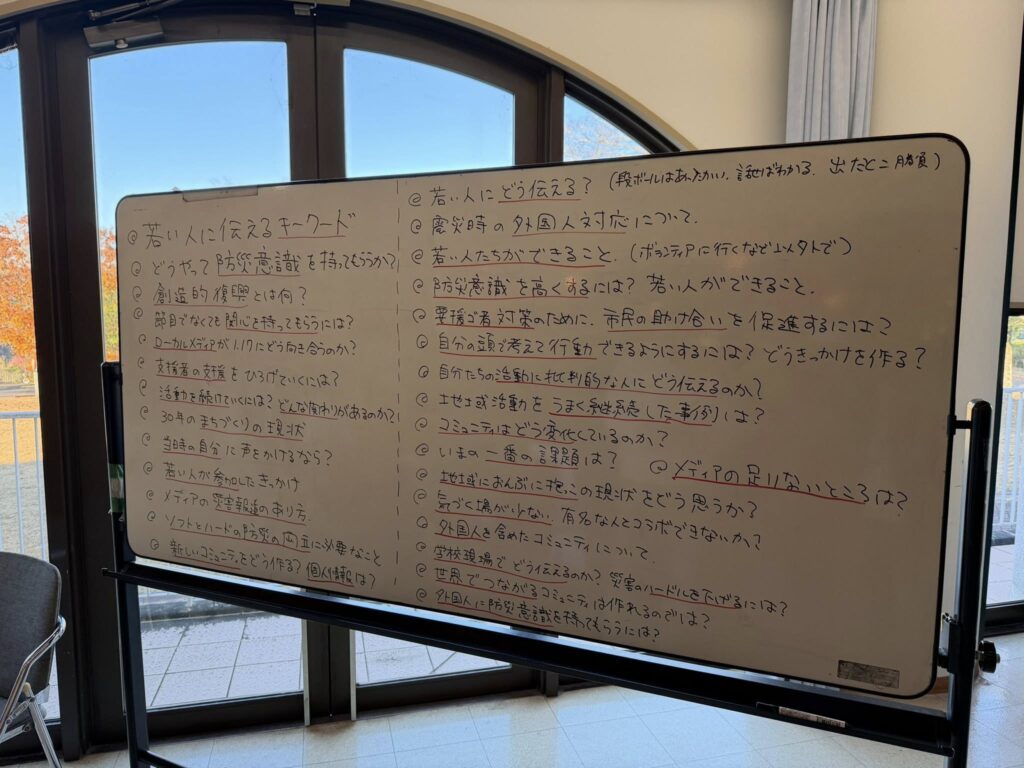 @ 若い人に伝えるキーワード
@ どうやって防災意識を持ってもらうか?
@ 創造的復興とは何?
@ 節目でなくても関心を持ってもらうには?
@ ローカルメディアが1.17にどう向き合うのか?
@ 支援者の支援をひろげていくには?
@ 活動を続けていくには? どんな変わりがあるのか?
@ 30年のまちづくりの現状
@ 当時の自分に声をかけるなら?
@ 若い人が参加したきっかけ
@ メディアの災害報道のあり方
@ ソフトとハードの防災の両立に必要なこと
@ 新しいコミュニティをどう作る? 個人情報は?
@ 若い人にどう伝える? (段ボールはあったかい、話せばわかる、出たとこ勝負)
@ 震災時の外国人対応について.
@ 若い人たちができること. (ボランティアに行くなど以外で)
@ 防災意識を高くするには? 若い人ができること.
@ 要援ゴ者対策のために、市民の助け合いを促進するには?
@ 自分の頭で考えて行動できるようにするには? どうきっかけを作る?
@ 自分たちの活動に批判的な人にどう伝えるのか?
@ 地域活動をうまく継続した事例は?
@ コミュニティはどう変化しているのか?
@ いまの一番の課題は? @ メディアの足りないところは?
@ 地域におんぶに抱っこの現状をどう思うか?
@ 気づく場が少ない. 有名な人とコラボできないか?
@ 外国人を含めたコミュニティについて
@ 学校現場でどう伝えるのか? 災害のハードルを下げるには?
@ 世界でつながるコミュニティは作れるのでは?
@ 外国人に防災意識を持ってもらうには?